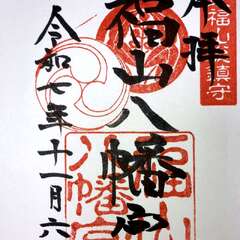 奉拝
福山総鎮守
福山八幡宮
令和七年十一月六
福山八幡宮